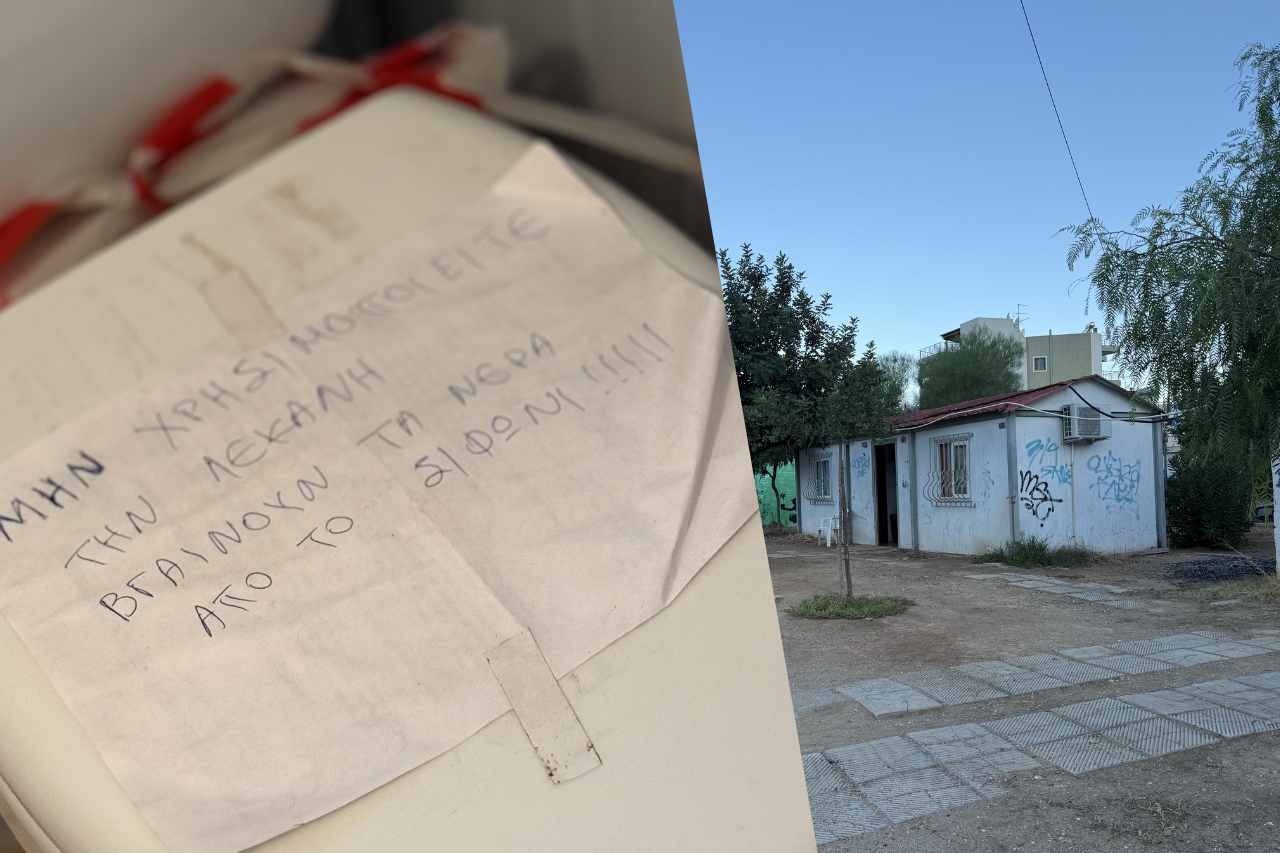 ΜΗΝ ΧΡΗΣΙΜΟΠΟΙΕΙΤΕ
ΤΗΝ ΛΕΚΑΝΗ
ΒΓΑΙΝΟΥΝ ΤΑ ΝΕΡΑ
ΑΠΟ ΤΟ ΣΙΦΩΝΙ!!!!!